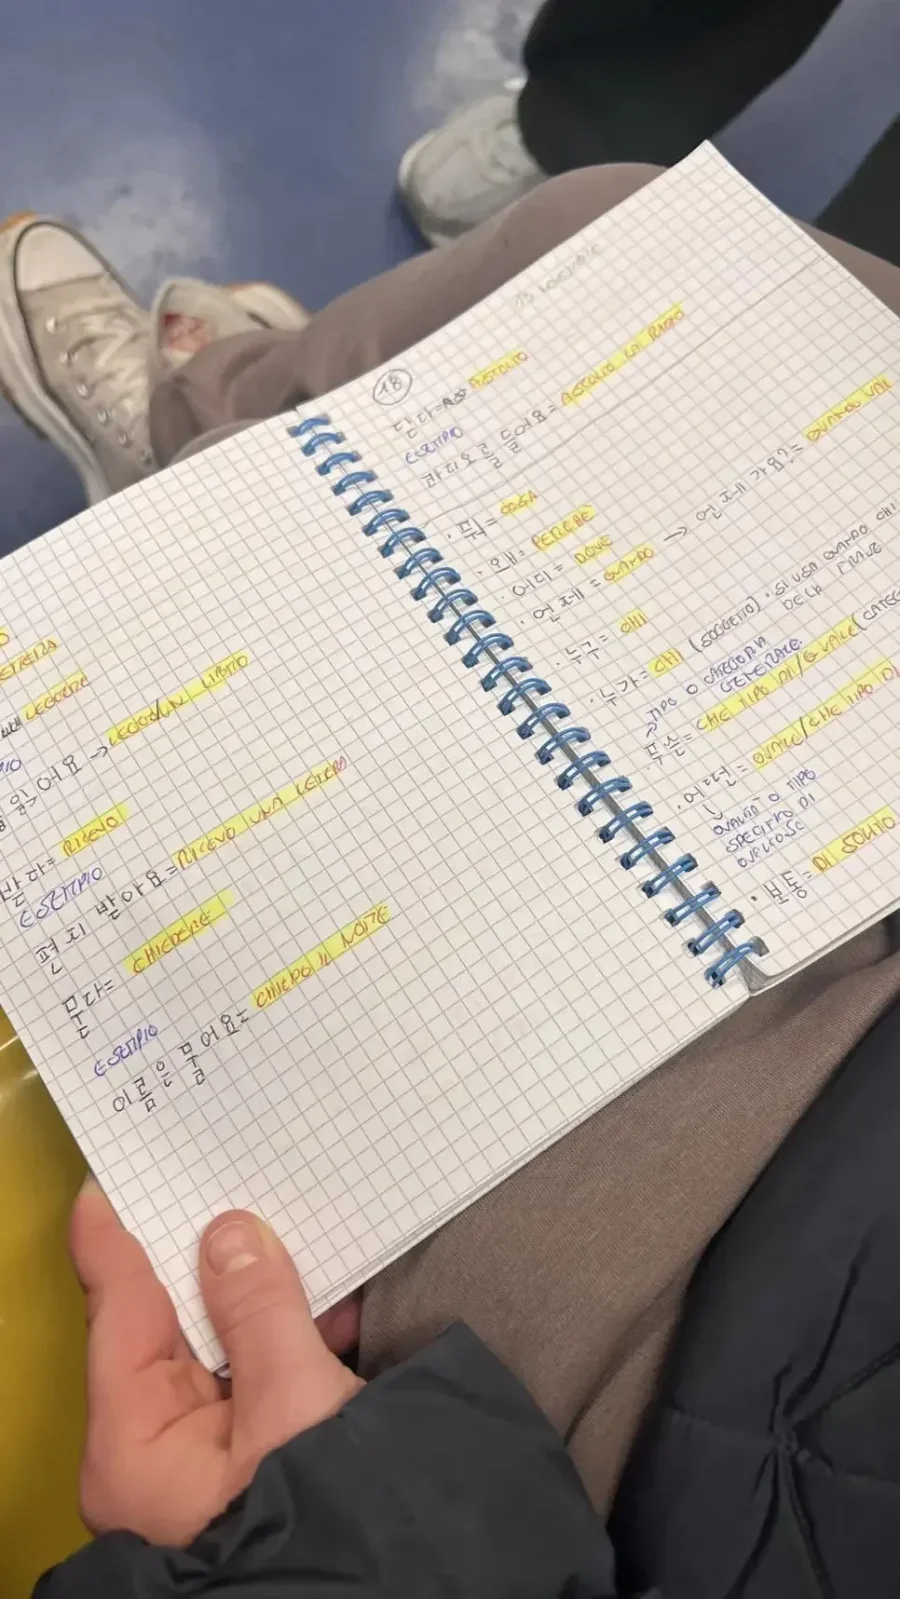 LEGGERE
읽어요 → LEGGO UN LIBRO
받다= RICEVO
ESEMPIO
편지 받아요= RICEVO UNA LETTERA
묻다= CHIEDERE
ESEMPIO
이름은 물어요= CHIEDO IL NOME
18
ASCOLTO
ESEMPIO
라디오를 들어요= ASCOLTO LA RADIO
· 뭐= COSA
· 왜= PERCHÈ
· 어디= DOVE
· 언제= QUANDO → 언제 가요?= QUANDO VAI
· 누구= CHI
· 누가= CHI (SOGGETTO). SI USA QUANDO CHI
DELLA FRASE
TIPO O CATEGORIA
GENERALE
· 무슨= CHE TIPO DI/QUALE
· 어떤= QUALE/CHE TIPO DI
QUALITÀ O TIPO
SPECIFICO DI
QUALCOSA
· 보통= DI SOLITO